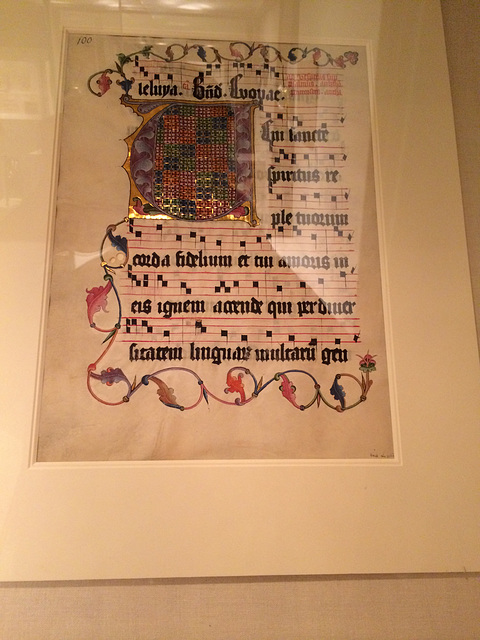 100
leluya. Bnd. Evovae.
eni sancte
spiritus re
ple tuorum
corda fidelium et tui amoris in
eis ignem accende qui per diuer
sitatem linguar multaru gen